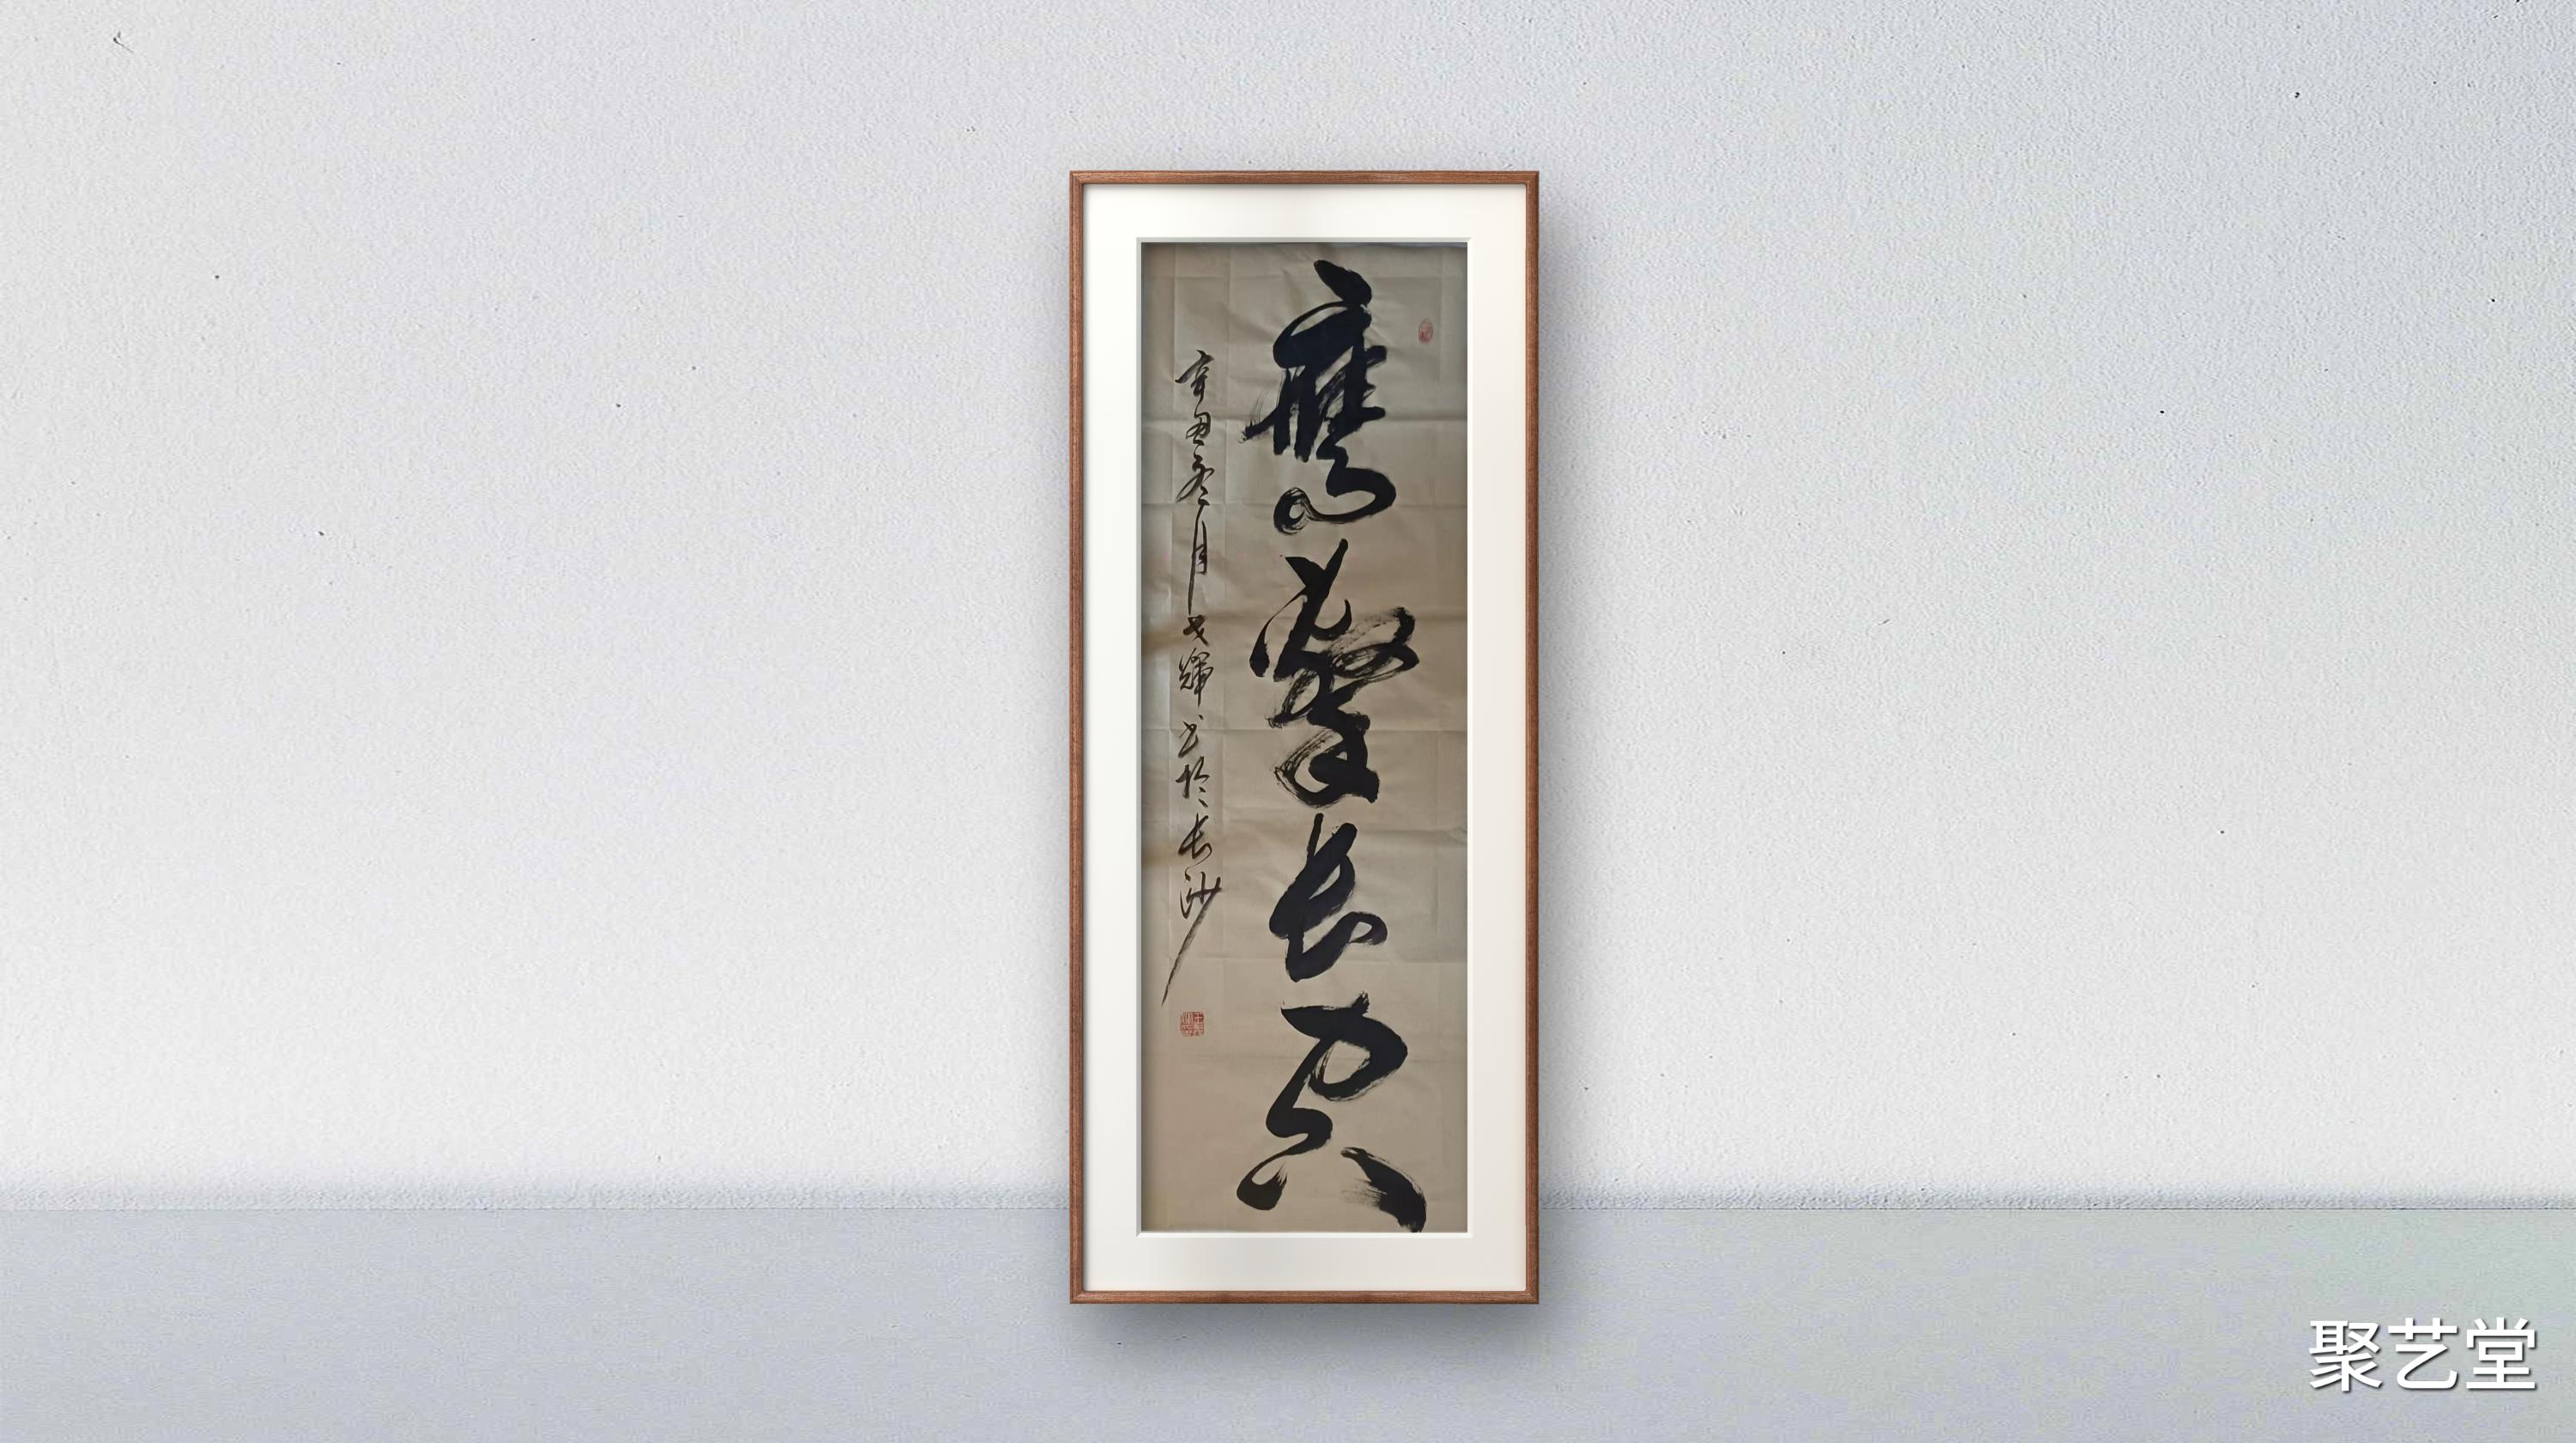 鹰击长空
辛丑冬月戈辉书于长沙
聚艺堂